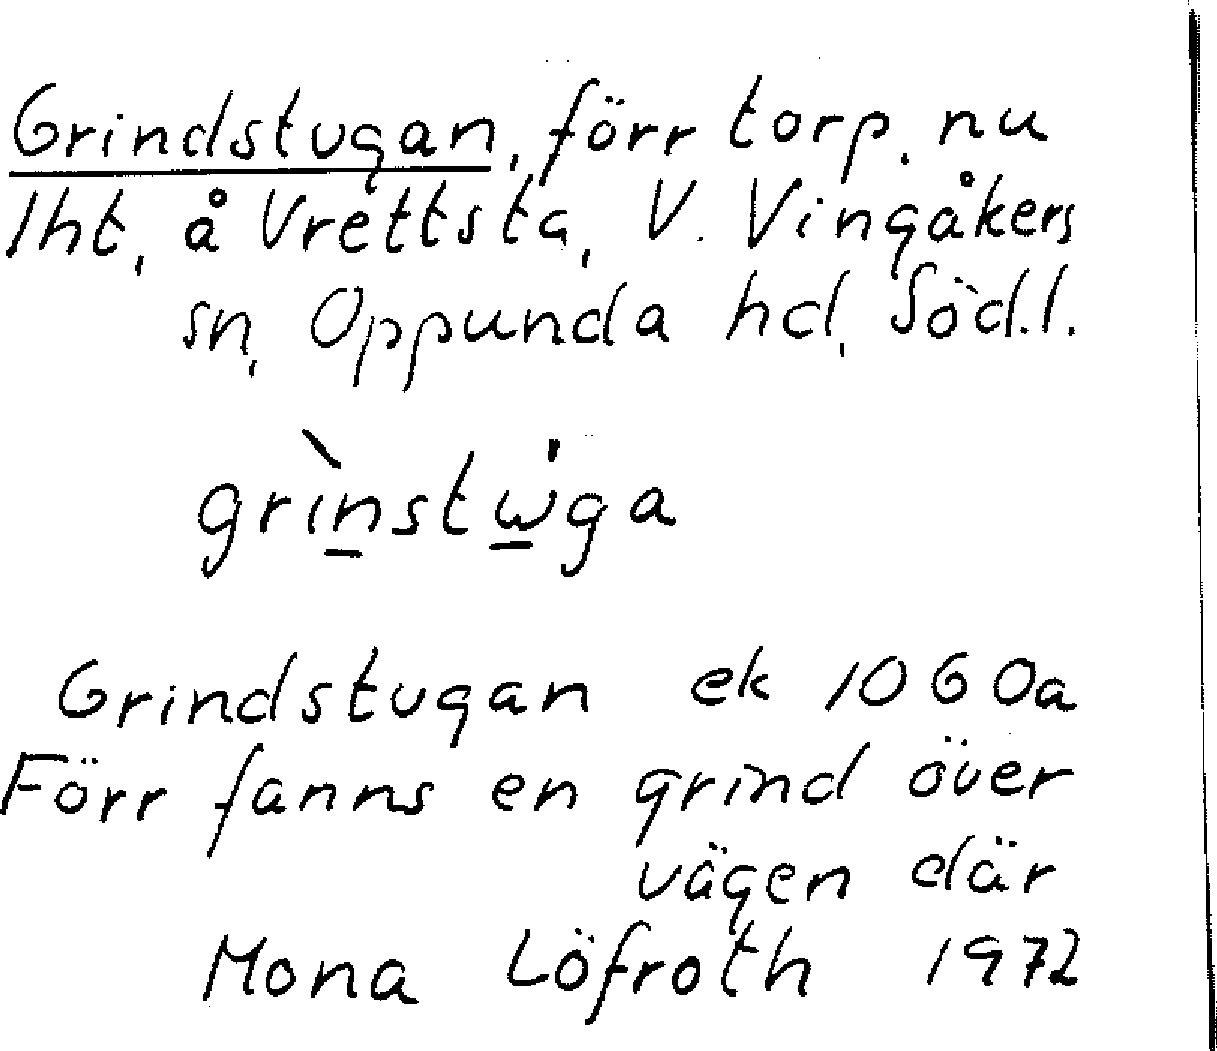 Grindstugan, förr torp, nu
lht, å Vrettsta, V. Vingåkers
sn, Oppunda hd, Södl.
grìn̲stω̲̇ga
Grindstugan ek 1060a
Förr fanns en grind över
vägen där
Mona Löfroth 1972